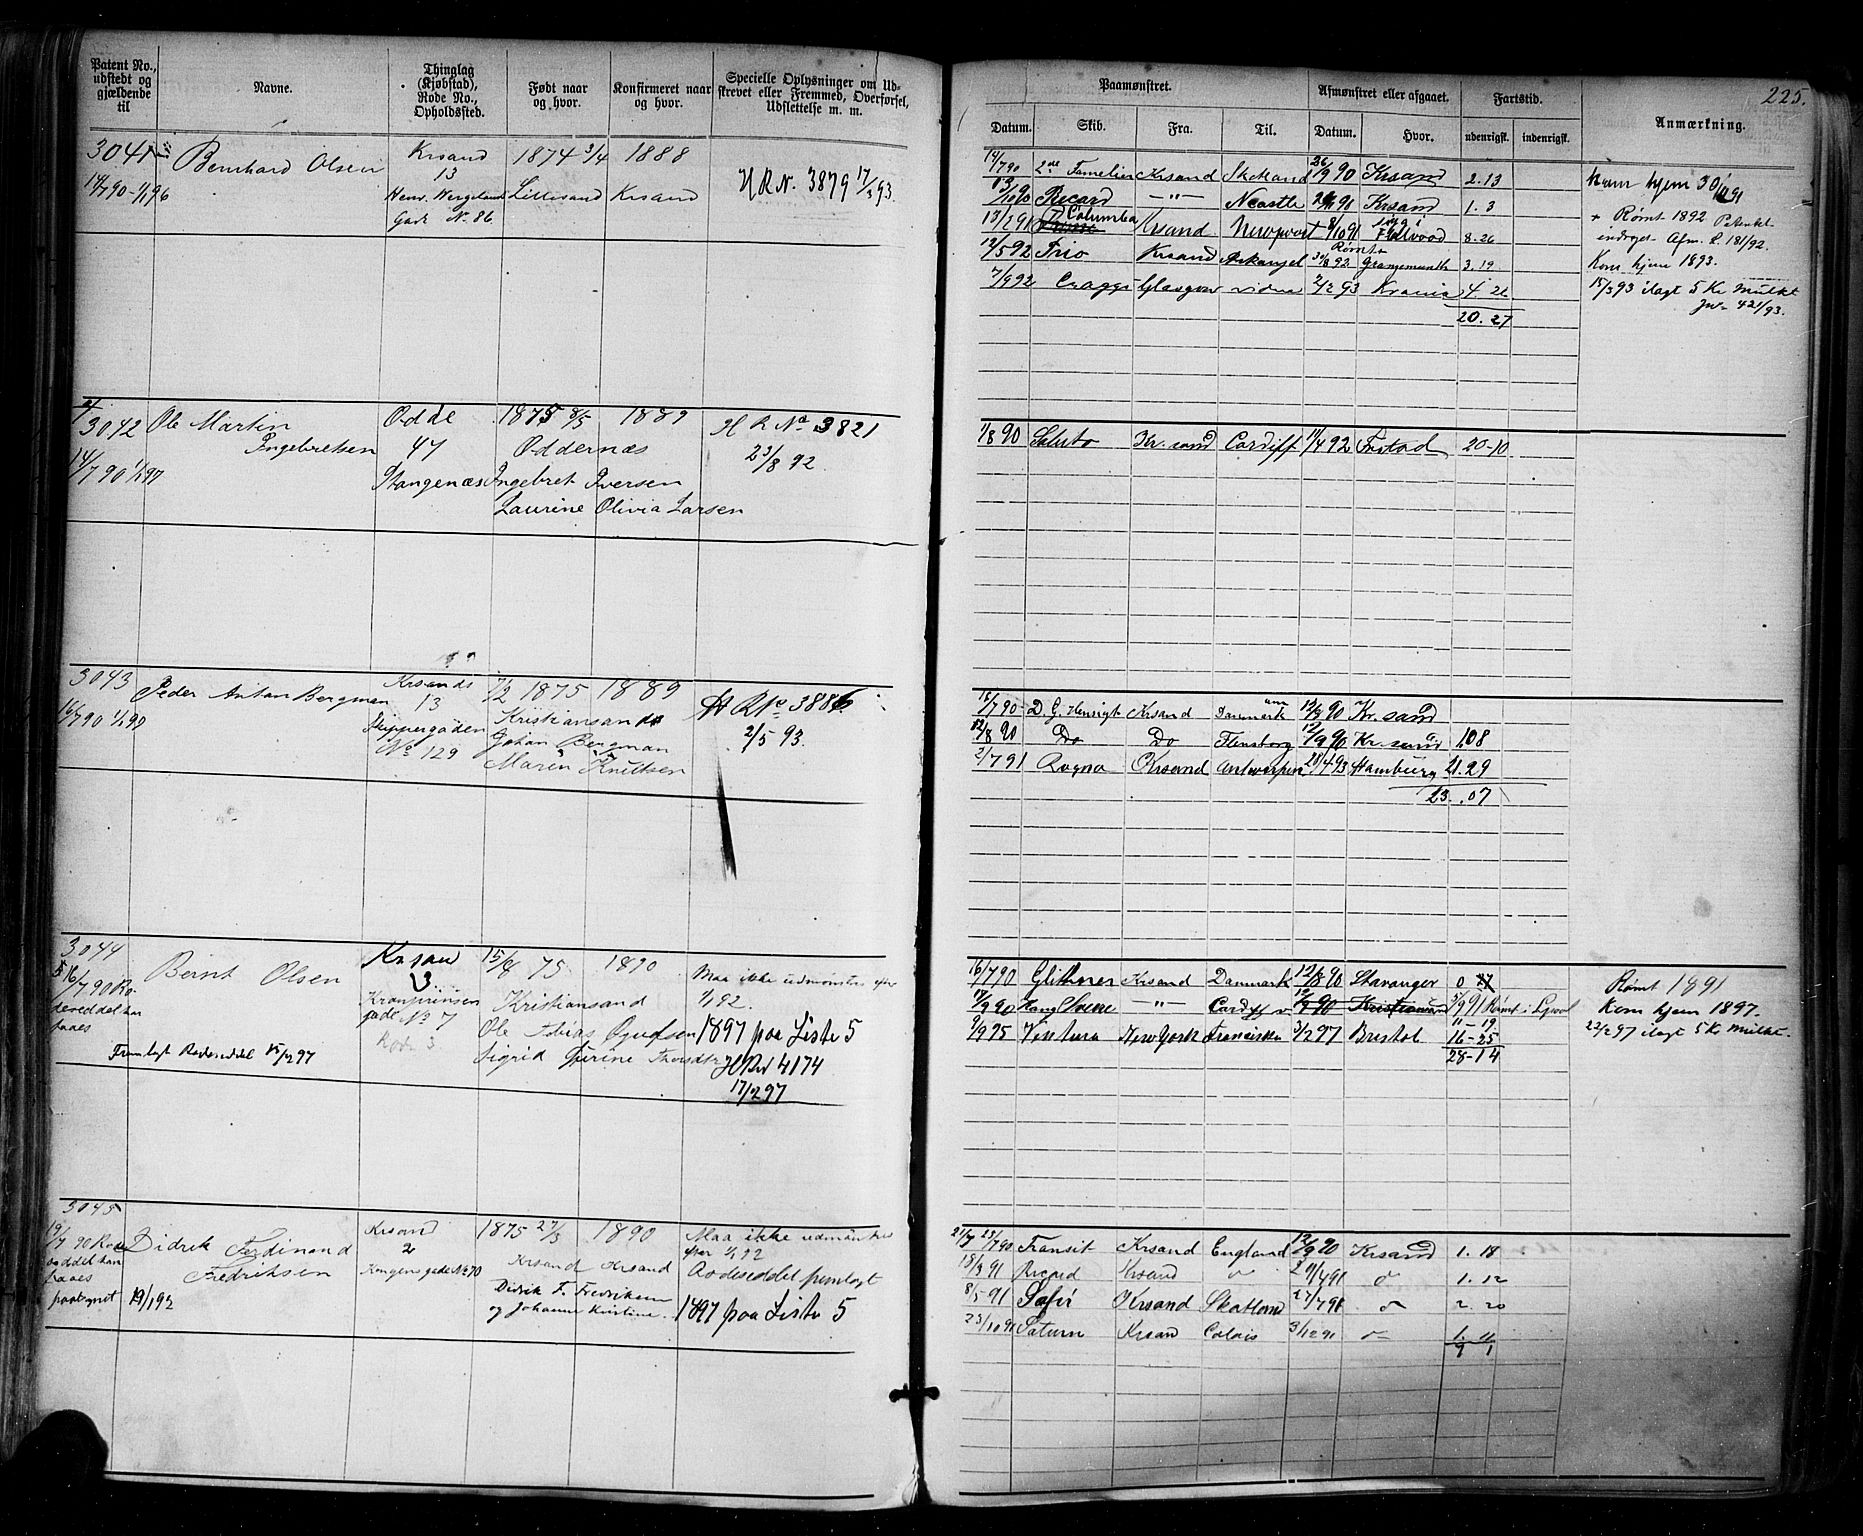 225.
Patent No., udstedt og gjældende til
Navne.
Thinglag (Kjøbstad), Rode No., Opholdssted.
Født naar og hvor.
Konfirmeret naar og hvor.
Specielle Oplysninger om Udskrevet eller Fremmed, Overførsel, Udslettelse m. m.
Paamønstret.
Afmønstret eller afgaaet.
Fartstid.
Anmærkning.
Datum. Skib. Fra. Til. Datum. Hvor. udenrigsk. indenrigsk.
3041 Bernhard Olsen Krsand 1874 3/4 1888
14/7 90 - 1/1 96 13 Lillesand Krsand H R N. 3879 17/3 93
Henr. Wergeland
Gade No. 86
14/790 2de Familien Krsand Skotland 26/9 90 Krsand 2.13
13/10 90 Ricard —"— Ncastle Krsand 1.3
13/2 91 Columba Krsand Newport 8/10 91 8.26
12/5 92 Frio Krsand Arkangel Rømt 30/8 92 Grangemouth 3.19
7/9 92 Craggs Glasgow videre 2/2 93 4.26
20.27
Kom hjem 30/10 91
+ Rømt 1892 Patentet
indroges Afm. L. 181/92.
Kom hjem 1893.
15/3 93 ilagt 5 Kr Mulkt
Jnr 421/93.
3042 Ole Martin Ingebretsen Odde 1875 8/5 1889 H R No 3821
14/7 90 1/1 97 47 Oddernæs 23/8 92
Stangenæs Ingebret Iversen
Laurine Olivia Larsen
1/8 90 Saluto Kr.sand Cardiff 11/4 92 20-10
3043 Peder Anton Bergman Krsands 7/2 1875 1889 H R No 3886
16/7 90 1/1 97 13 Kristiansand 2/5 93.
Skippergaden Johan Bergman
No 129 Maren Knutsen
18/7 90 D. G. Hensigt Krsand Danmark 12/8 90 Kr.sand
12/8 90 Do Do Flensborg 12/9 90 Kr.sand 108
2/7 91 Ragna Krsand Antwerpen 28/4 93 Hamburg 21.29
23.07
3044 Bernt Olsen Krsand 15/8 75 1890 Maa ikke udmønstres efter
16/7 90 Ro- 13 1/1 92.
deseddel kun Kronprinsen Kristiansand
faaes gade No 7 Ole Tobias Ogmdsen 1897 paa Liste 5
Rode 3 Sigrid Gurine Thorsdtr HRN 4174
Fremlagt Rodeseddel 15/2 97 17/2 97
16/7 90 Glittner Krsand Danmark 12/8 90 Stavanger 0 27
17/9 90 Kong Sverre —"— Cardiff 12/9 90 Kristiansand 3/9 91 Rømt i Lpool
11-19
9/9 95 Ventura New York Francisko 3/2 97 Bristol 16-25
28-14
Rømt 1891
Kom hjem 1897.
22/2 97 ilagt 5 Kr Mulkt.
3045 Didrik Ferdinand Fredriksen Krsand 1875 27/3 1890 Maa ikke udmønstres
19/7 90 Rode- 2 Krsand Krsand efter 1/1 92
seddel kan Kongensgade No 70 Didrik F. Fredriksen Rodeseddel fremlagt
faaes og Johanne Kristine. 1897 paa Liste 5
paategnet 19/1 92
23/7 90 Transit Krsand England 12/9 90 Krsand 1. 18
18/3 91 Ricard Krsand " 29/4 91 " 1. 12
8/5 91 Safir Krsand Skotland 27/7 91 " 2. 20
23/10 91 Saturn Krsand Calais 3/12 91 " 1. 11
9 1